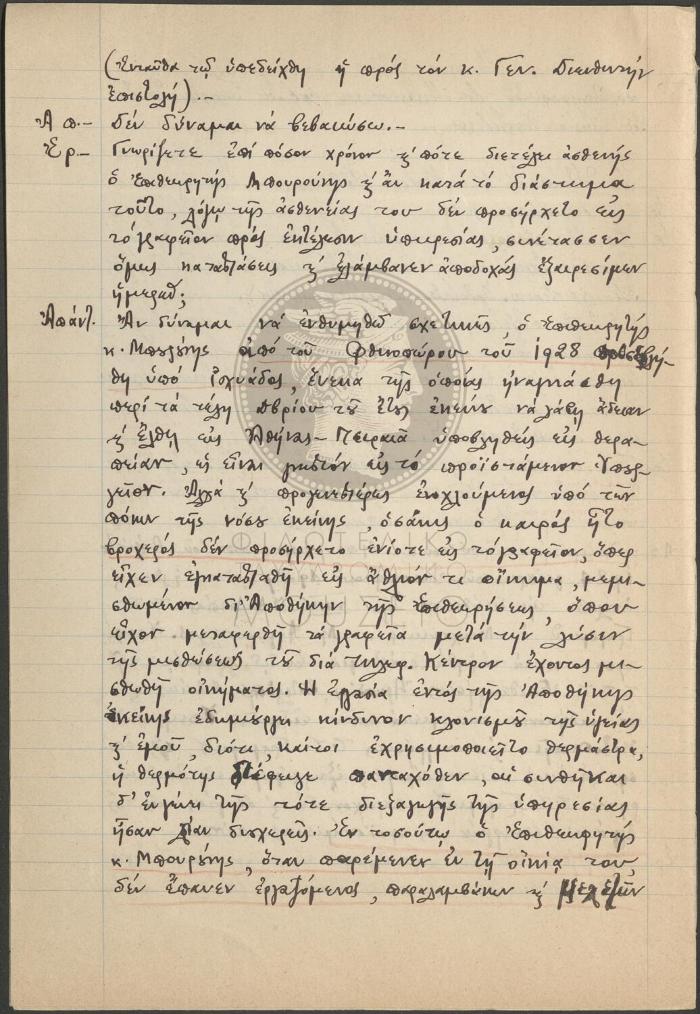 (Ἐνταῦθα τῷ ὑπεδείχθη ἡ πρός τόν κ. Γεν. Διευθυντήν
ἐπιστολή).—
Ἀπ.— Δέν δύναμαι νά βεβαιώσω.—
Ἐρ.— Γνωρίζετε ἐπί πόσον χρόνον ϗ πότε διετέλει ἀσθενής
ὁ Ἐπιθεωρητής Μπουρούνης ϗ ἄν κατά τό διάστημα
τοῦτο, λόγῳ τῆς ἀσθενείας του δέν προσήρχετο εἰς
τό γραφεῖον πρός ἐκτέλεσιν ὑπηρεσίας, συνέτασσεν
ὅμως καταστάσεις ϗ ἐλάμβανεν ἀποδοχάς ἐξαιρεσίμων
ἡμερῶν;
Ἀπάντ. Ἄν δύναμαι νά ἐνθυμηθῶ σχετικῶς, ὁ Ἐπιθεωρητής
κ. Μπουρούνης ἀπό τοῦ Φθινοπώρου τοῦ 1928 προσεβλή-
θη ὑπό ἰσχυάδος, ἕνεκα τῆς ὁποίας ἠναγκάσθη
περί τά τέλη 8βρίου τοῦ ἔτους ἐκείνου νά λάβῃ ἄδειαν
ϗ ἔλθῃ εἰς Ἀθήνας–Πειραιᾶ ὑποβληθείς εἰς θερα-
πείαν, ὡς εἶναι γνωστόν εἰς τό προϊστάμενον Ὑπουρ-
γεῖον. Ἀλλά ϗ προγενεστέρως ἐνοχλούμενος ὑπό τῶν
πόνων τῆς νόσου ἐκείνης, ὁσάκις ὁ καιρός ἦτο
βροχερός δέν προσήρχετο ἐνίοτε εἰς τό γραφεῖον, ὅπερ
εἶχεν ἐγκατασταθῆ εἰς ἄθλιόν τι οἴκημα, μεμι-
σθωμένον δι' Ἀποθήκην τῆς Ἐπιθεωρήσεως, ὅπου
εἶχον μεταφερθῆ τά γραφεῖα μετά τήν λύσιν
τῆς μισθώσεως τοῦ διά Τηλεφ. Κέντρον ἔχοντος μι-
σθωθῆ οἰκήματος. Ἡ ἐργασία ἐντός τῆς Ἀποθήκης
ἐκείνης ἐδημιούργει κίνδυνον κλονισμοῦ τῆς ὑγείας
ϗ ἐμοῦ, διότι, καίτοι ἐχρησιμοποιεῖτο θερμάστρα,
ἡ θερμότης διέφευγε πανταχόθεν, αἱ συνθῆκαι
δ' ἐν γένει τῆς τότε διεξαγωγῆς τῆς ὑπηρεσίας
ἦσαν λίαν δυσχερεῖς. Ἐν τοσούτῳ ὁ Ἐπιθεωρητής
κ. Μπουρούνης, ὅταν παρέμενεν ἐν τῇ οἰκίᾳ του,
δέν ἔπαυεν ἐργαζόμενος, παραλαμβάνων ϗ μελετῶν
ΦΙΛΟΤΕΛΙΚΟ
ΜΟΥΣΕΙΟ